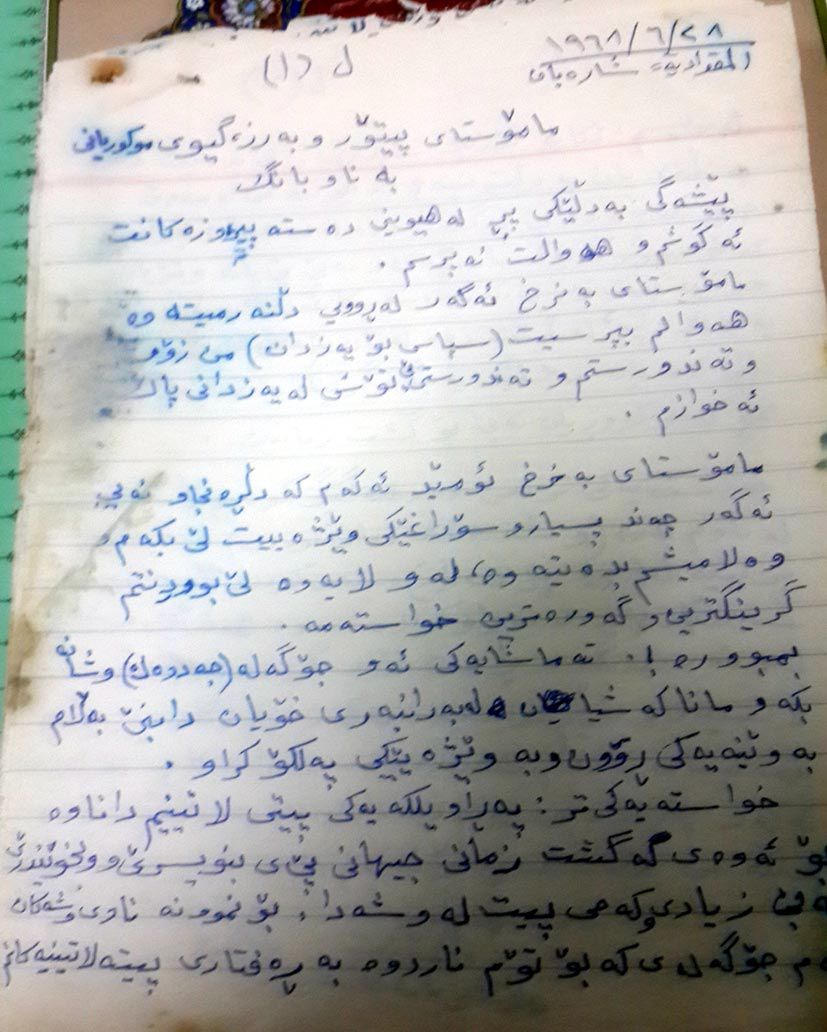 ١٩٦٨/٦/٢٨
المقدادية، شارەبان
ل (١)
مامۆستای پیتۆڵ و بەرزەگیوی موکوریانی
بە ناو بانگ
پێشەکی بەدڵێکی پڕ لە هیوینی دەستە پیرۆزەکانت
ئەگوشم و هەواڵت ئەپرسم .
مامۆستای بەنرخ ئەگەر لەڕوویی دڵنەرمیتەوە
هەواڵم بپرسیت (سپاس بۆ یەزدان) من زۆر
وتەندورستم و تەندورستیی تۆش لە یەزدانی پاک
ئەخوازم .
مامۆستای بەنرخ ئومێد ئەکەم کە دڵڕەنجاو نەبی
ئەگەر چەند پسیارو سۆراغێکی وێژەییت لێ بکەم و
وەلامیشم بدەیتەوە، لەو لایەوە لێ بووردنتم
گرینگتریی و گەورەتریی خواستەمە .
بمبوورە !. تەماشایەکی ئەو جۆگەلە (جەدوەل) وشانە
بکە و ماناکە شیاویان لەبەرانبەری خۆیان دابنێ بەڵام
بە وێنەیەکی ڕۆون وبە وێژەیێکی پەلکۆ کراو .
خواستەیەکی تر : پەڕاویلکەیەکی پیتی لاتینیم داناوە
بۆ ئەوەی گەگشت زمانی جیهانی پێ ی بنوسرێ و وبخوێندرێ
بەبێ زیادی و کەمی پیت لە وشەدا . بۆ نموونە ناوی وشەکان
ەم جۆگەلەی کە بۆ تۆم ناردوە بە ڕەفتاری پیتە لاتینیەکانم